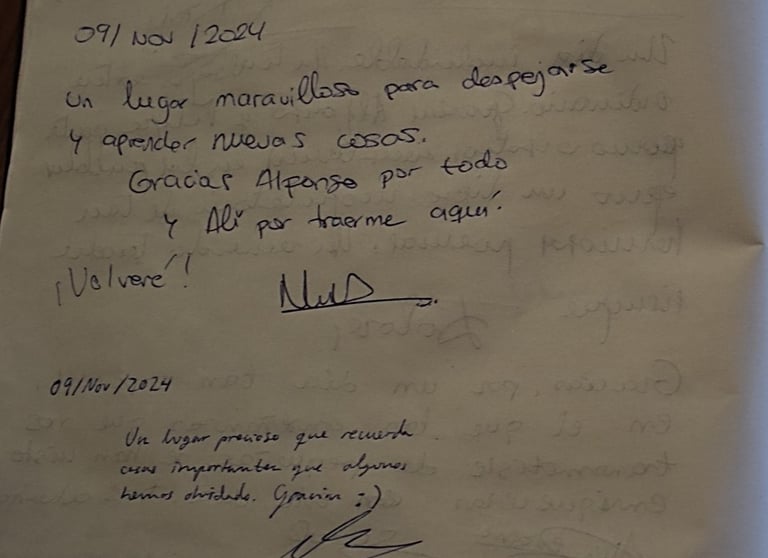 09/Nov/2024
Un lugar maravilloso para despejarse
y aprender nuevas cosas.
Gracias Alfonso por todo
y Ali por traerme aquí.
¡Volveré!
09/Nov/2024
Un lugar precioso que recuerda
cosas importantes que algunos
hemos olvidado. Gracias :)